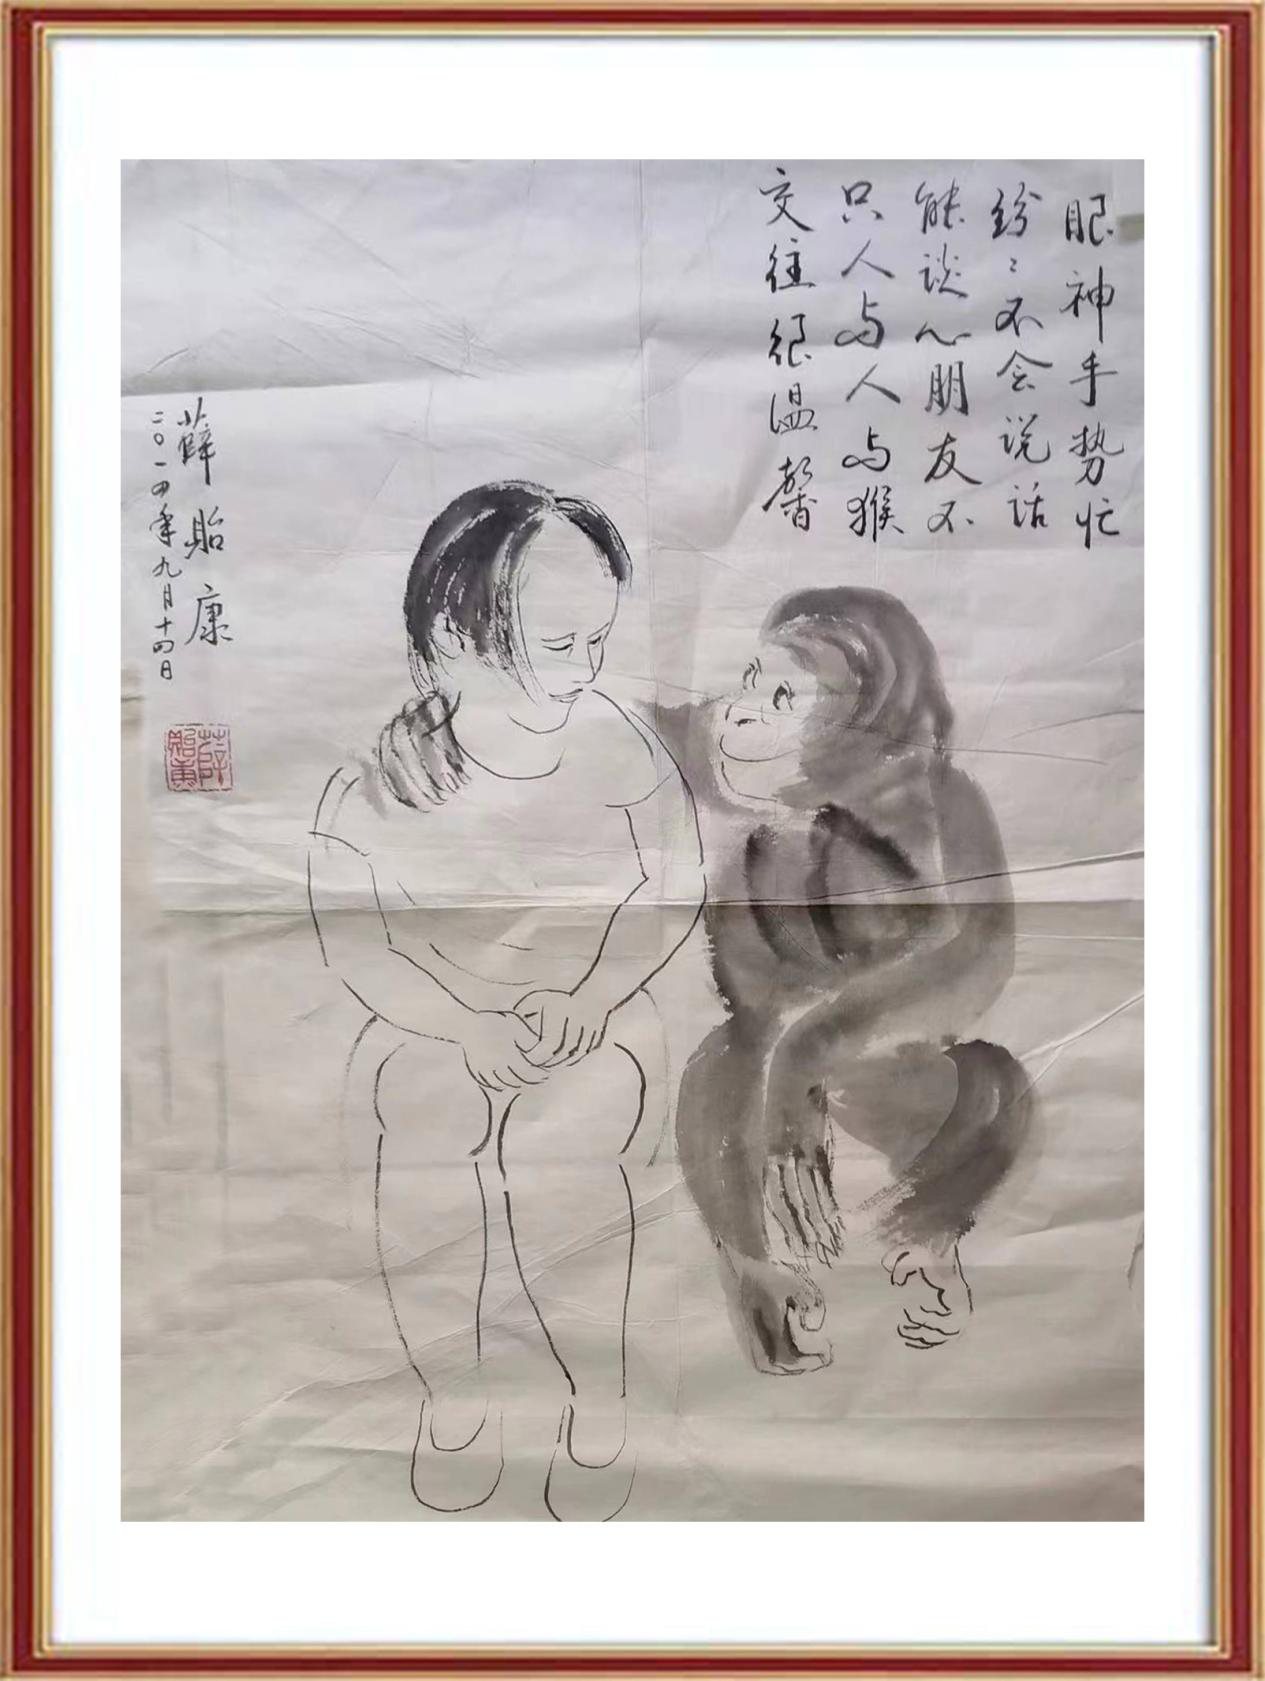 眼神手势忙
纷〻不会说话
能谈心朋友不
只人与人与猴
交往很温馨
薛贻康
二〇一四年九月十四日
薛贻康